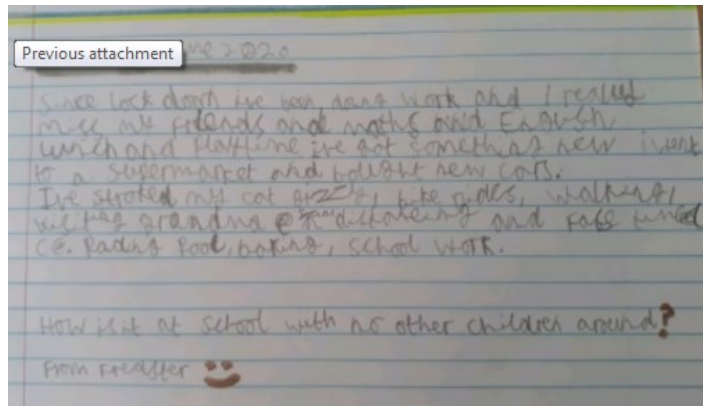 Previous attachment
ne 2020
Since lock down ive been doing work and I really
miss my friends and maths and English,
lunch and Playtime ive got something new i went
to a supermarket and bought new cars.
Ive stroted my cat bike rides, walking,
visiting grandma and face
Pading Pool, baking, school work.
How is it at school with no other children around?
From Fredster